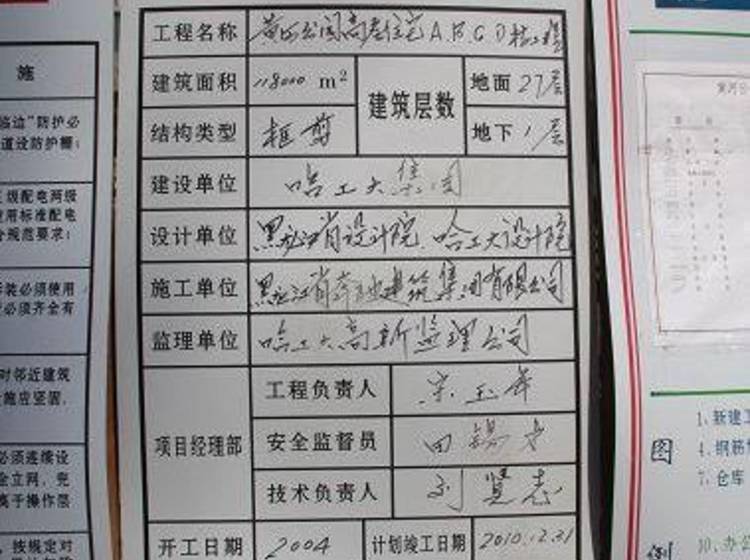 施
临边"防护必
道设防护棚;
级配电两级
使用标准配电
合规范要求;
装必须使用
必须齐全有
对邻近建筑
施应坚固,
必须连续设
全立网, 兜
高于操作层
, 按规定对
工程名称 黄河公园高层住宅A.B.C.D栋工程
建筑面积 118000 m² 建筑层数 地面 27层
结构类型 框剪 地下 1层
建设单位 哈工大集团
设计单位 黑龙江省设计院、哈工大设计院
施工单位 黑龙江省建筑集团有限公司
监理单位 哈工大高新监理公司
项目经理部 工程负责人 宋玉年
安全监督员 田锡
技术负责人 刘贤志
开工日期 2004 计划竣工日期 2010.12.31
黄河公
图
例
1、新建工
4、钢筋
7、仓库
10、办公